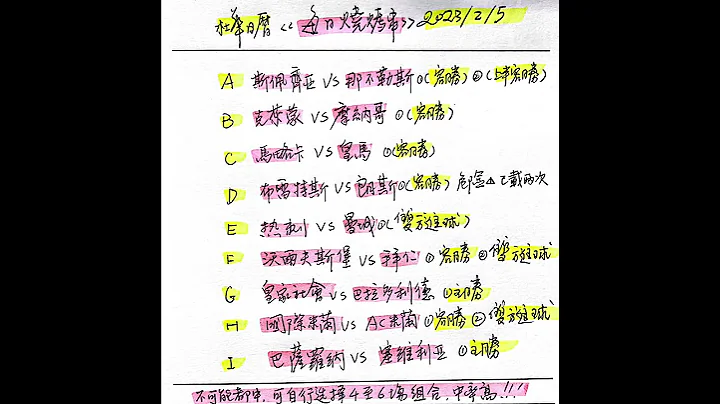 杜華日曆《每日燒烤串》2023/2/5
A 斯佩齊亞 VS 那不勒斯 ①(客勝) ②(上半客勝)
B 克萊蒙 VS 摩納哥 ①(客勝)
C 馬略卡 VS 皇馬 ①(客勝)
D 布雷特斯 VS 朗斯 ①(客勝)
E 热刺 VS 曼城 ①(雙方進球)
F 沃爾夫斯堡 VS 拜仁 ①客勝 ②雙方進球
G 皇家社會 VS 巴拉多利德 ①主勝
H 國際米蘭 VS AC米蘭 ①客勝 ②雙方進球
I 巴薩羅納 VS 塞維利亞 ①主勝
不可能都中,可自行选择4至6場組合,中率高!!!